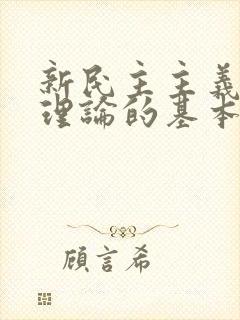 新民主主義
理論的基本
顧言希